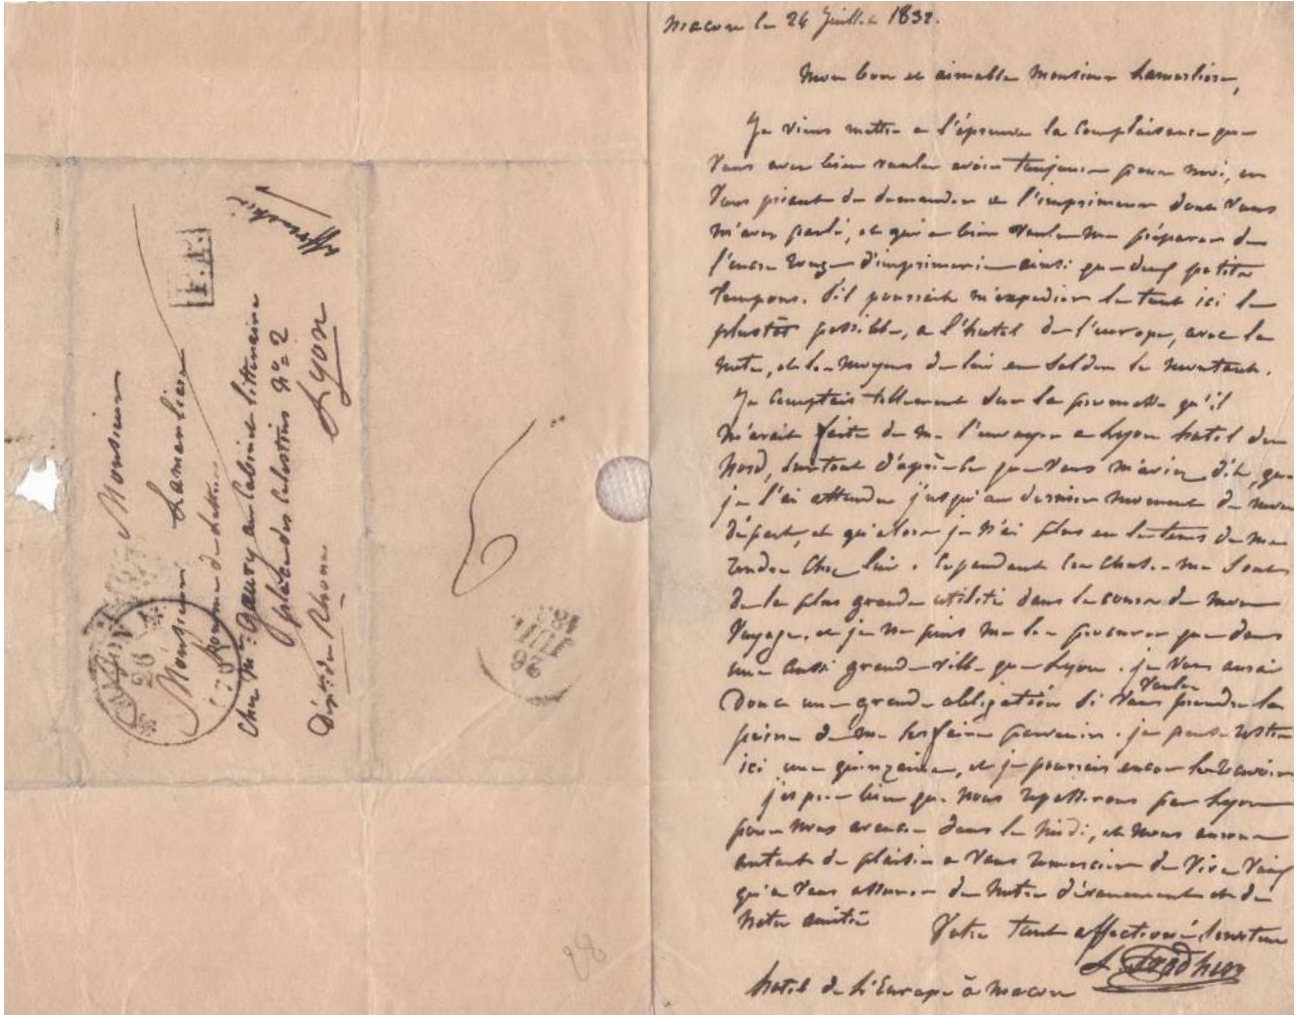 Monsieur
Monsieur Lamerliere
homme de lettres
Chez Mr: Gaury au Cabinet litteraire
place des Celestins N°= 2
Lyon
Dépt du Rhône
affranchi
P.P.
26
26
JUIL
28
macon le 24 Juillet 1832.
Mon bon et aimable Monsieur Lamerliere,
Je viens mettre a l'épreuve la Complaisance que
Vous avez bien voulu avoir toujours pour moi, en
Vous priant de demander a l'imprimeur dont Vous
m'avez parlé, et qui a bien Voulu me préparer de
l'encre rouge d'imprimerie ainsi que deux petits
tampons. S'il pourrait m'expedier le tout ici le
plustôt possible, a l'hotel de l'europe, avec la
note, et les moyens de lui en Solder le montant.
Je Comptais tellement Sur la promesse qu'il
m'avait faite de me l'envoyer a Lyon hotel du
Nord, Surtout d'après ce que Vous m'aviez dit, que
je l'ai attendu jusqu'au dernier moment de mon
départ, et qu'alors je n'ai plus eu le tems de me
rendre Chez lui. Cependant Ces choses me Sont
de la plus grande utilité dans le cours de mon
Voyage, et je ne puis me les procurer que dans
une aussi grande ville que Lyon. je Vous aurai
Donc une grande obligation Si Vous Voulez prendre la
peine de me les faire parvenir. je pense rester
ici une quinzaine, et je pourrais encor les recevoir
j'espere bien que nous repasserons par Lyon
pour nous avancer dans le Midi, et nous aurons
autant de plaisir a Vous remercier de Vive Voix
qu'a Vous assurer de notre dévouement et de
notre amitié
Votre tout affectionné Serviteur
hotel de l'Europe à macon